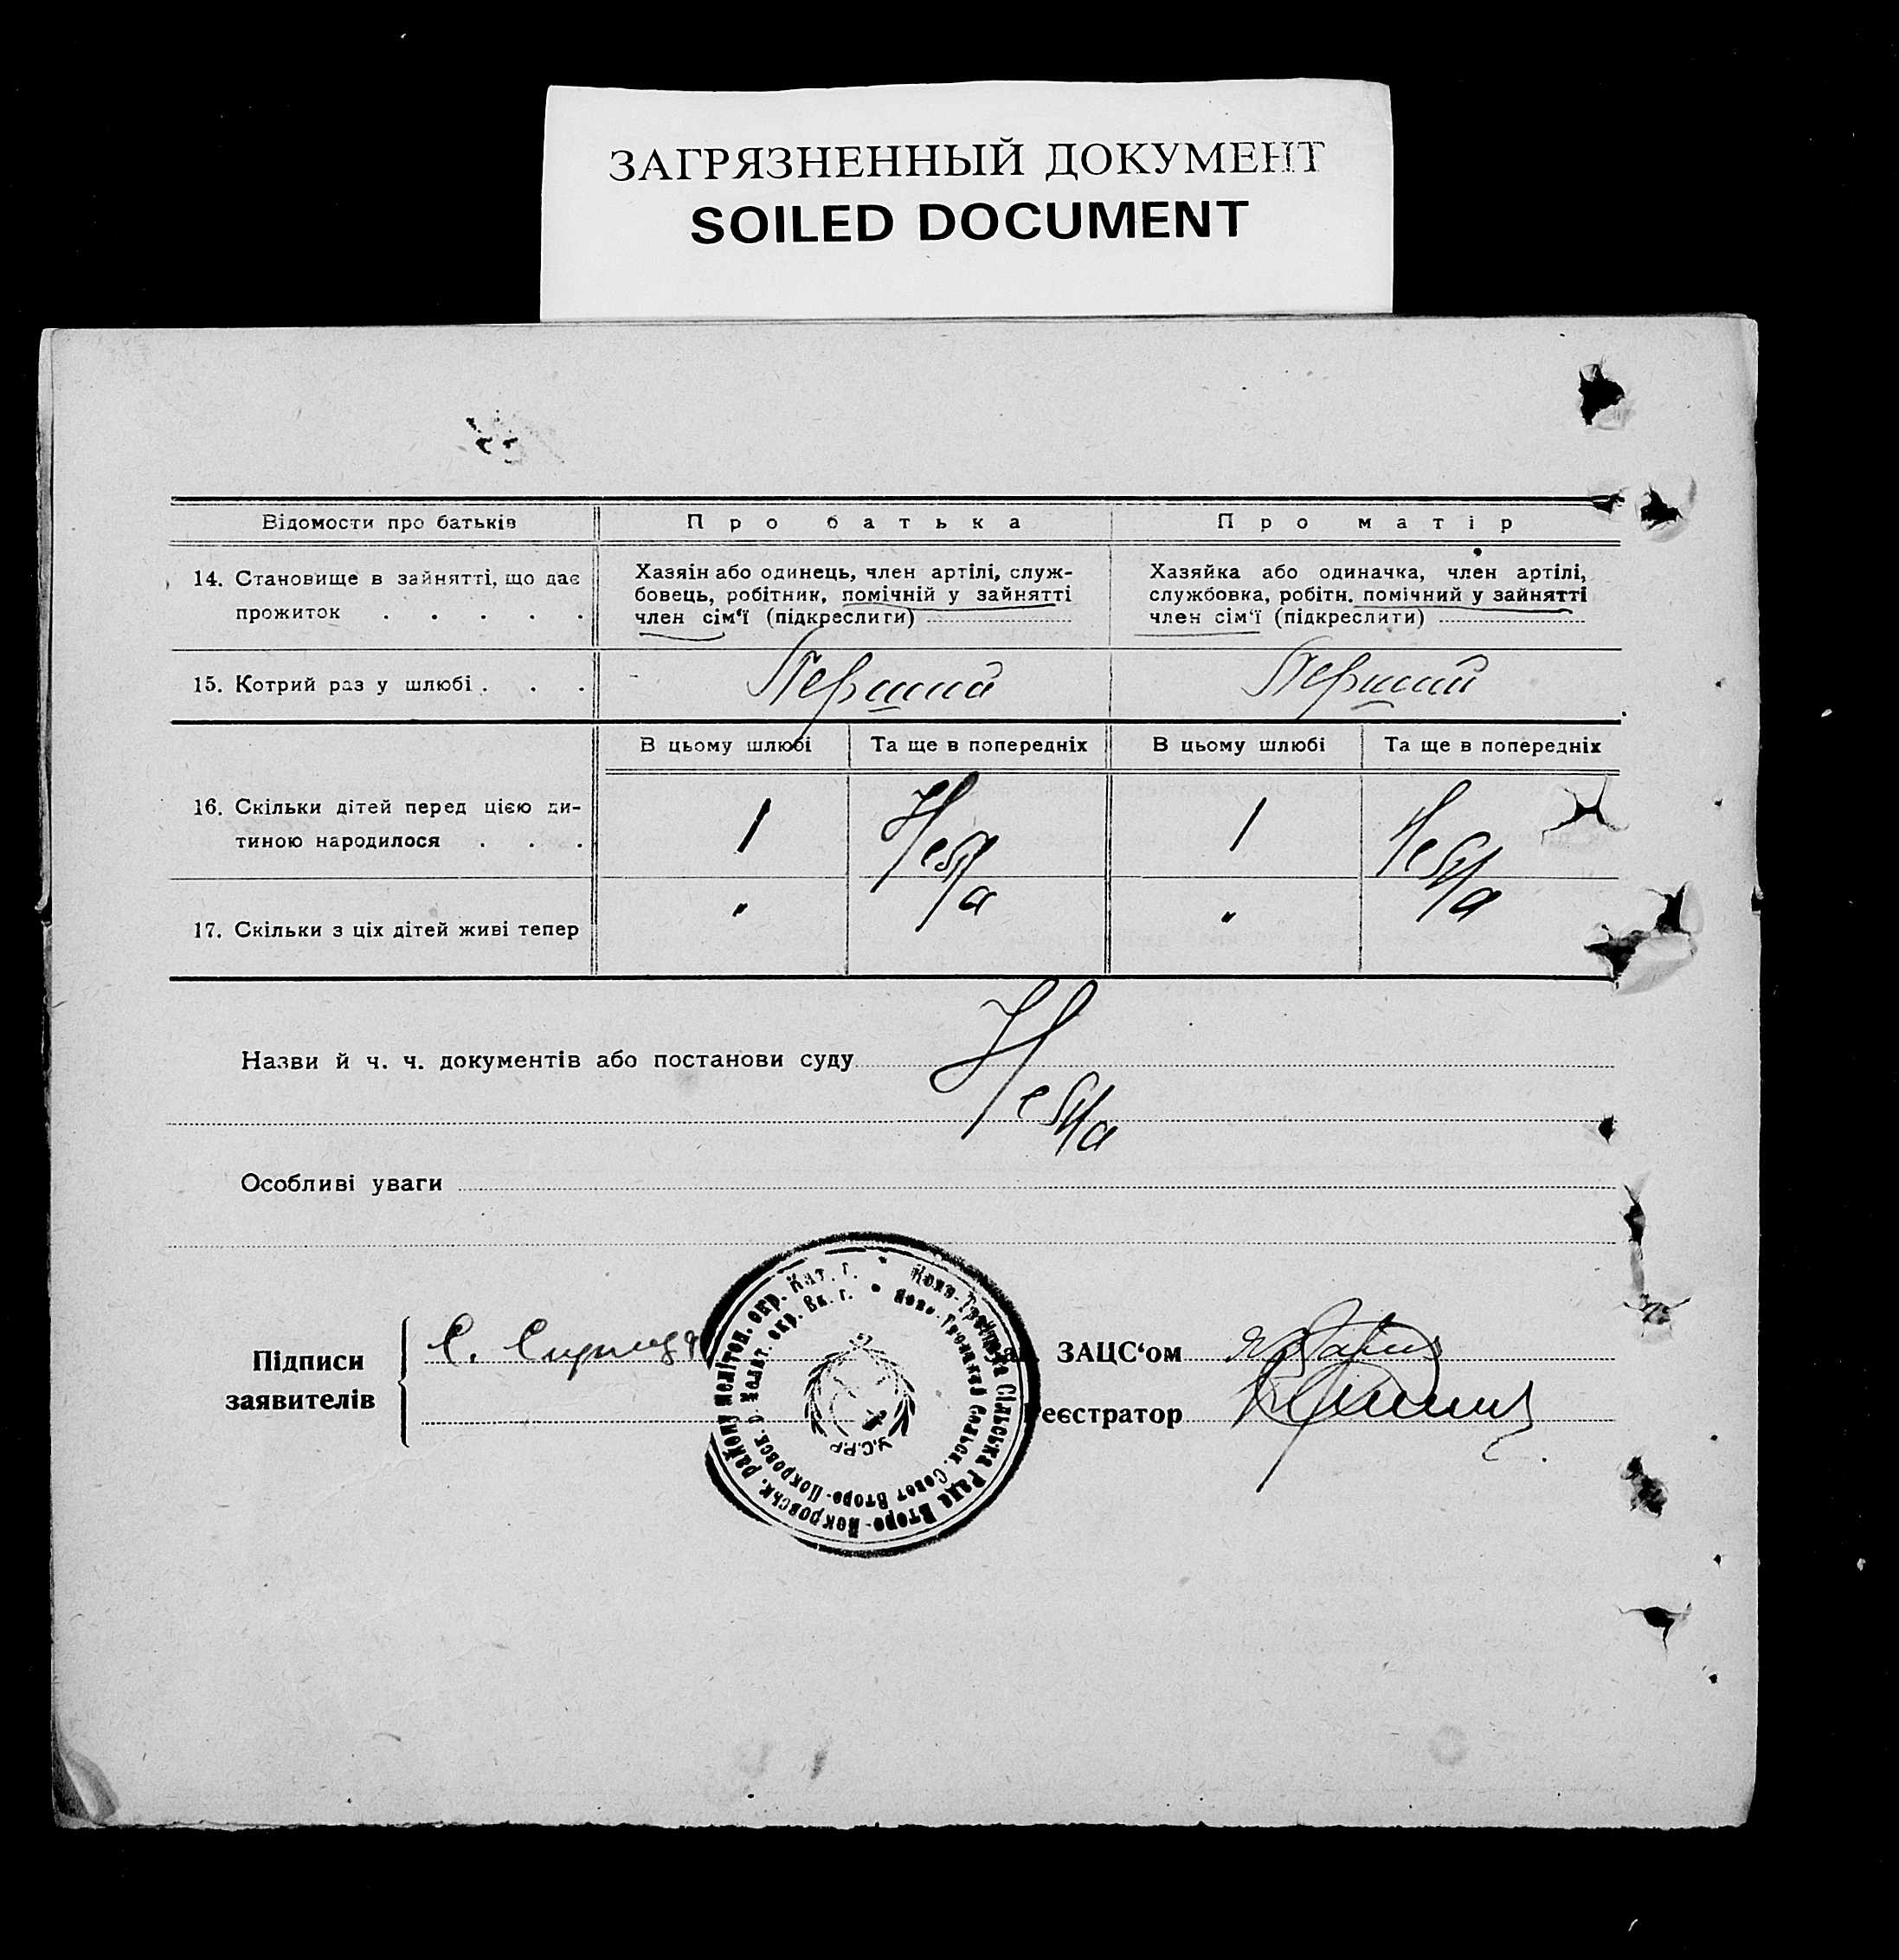 ЗАГРЯЗНЕННЫЙ ДОКУМЕНТ
SOILED DOCUMENT
Відомости про батьків
Про батька
Про матір
14. Становище в зайнятті, що дає
прожиток . . . . .
Хазяін або одинець, член артілі, служ-
бовець, робітник, помічній у зайнятті
член сім‘ї (підкреслити)
Хазяйка або одиначка, член артілі,
службовка, робітн. помічний у зайнятті
член сім‘ї (підкреслити)
15. Котрий раз у шлюбі . . .
Перший
Перший
В цьому шлюбі
Та ще в попередніх
В цьому шлюбі
Та ще в попередніх
16. Скільки дітей перед цією ди-
тиною народилося . . .
1
Нема
1
Нема
17. Скільки з ціх дітей живі тепер
"
"
Назви й ч. ч. документів або постанови суду
Нема
Особливі уваги
Підписи
заявителів
С.
ЗАЦС‘ом
еєстратор
Сільська Рада Второ-Покровськ. району Мелітоп. окр. Кат. г.
Сельск. Совет Второ-Покровск.
У.С.Р.Р